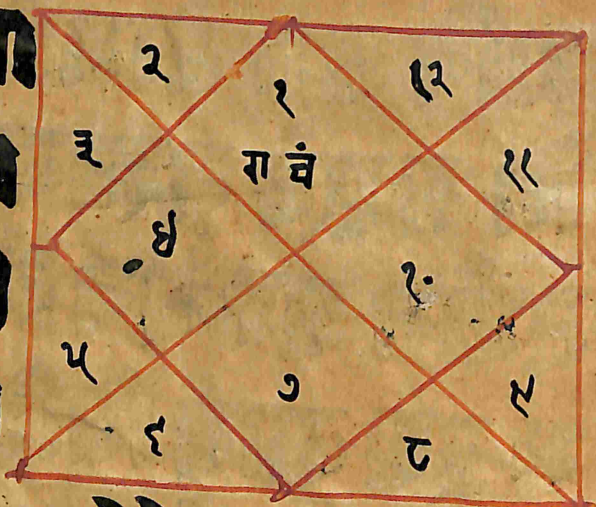 २ १ १२
३ रा चं ११
४ १०
५ ७ ९
६ ८